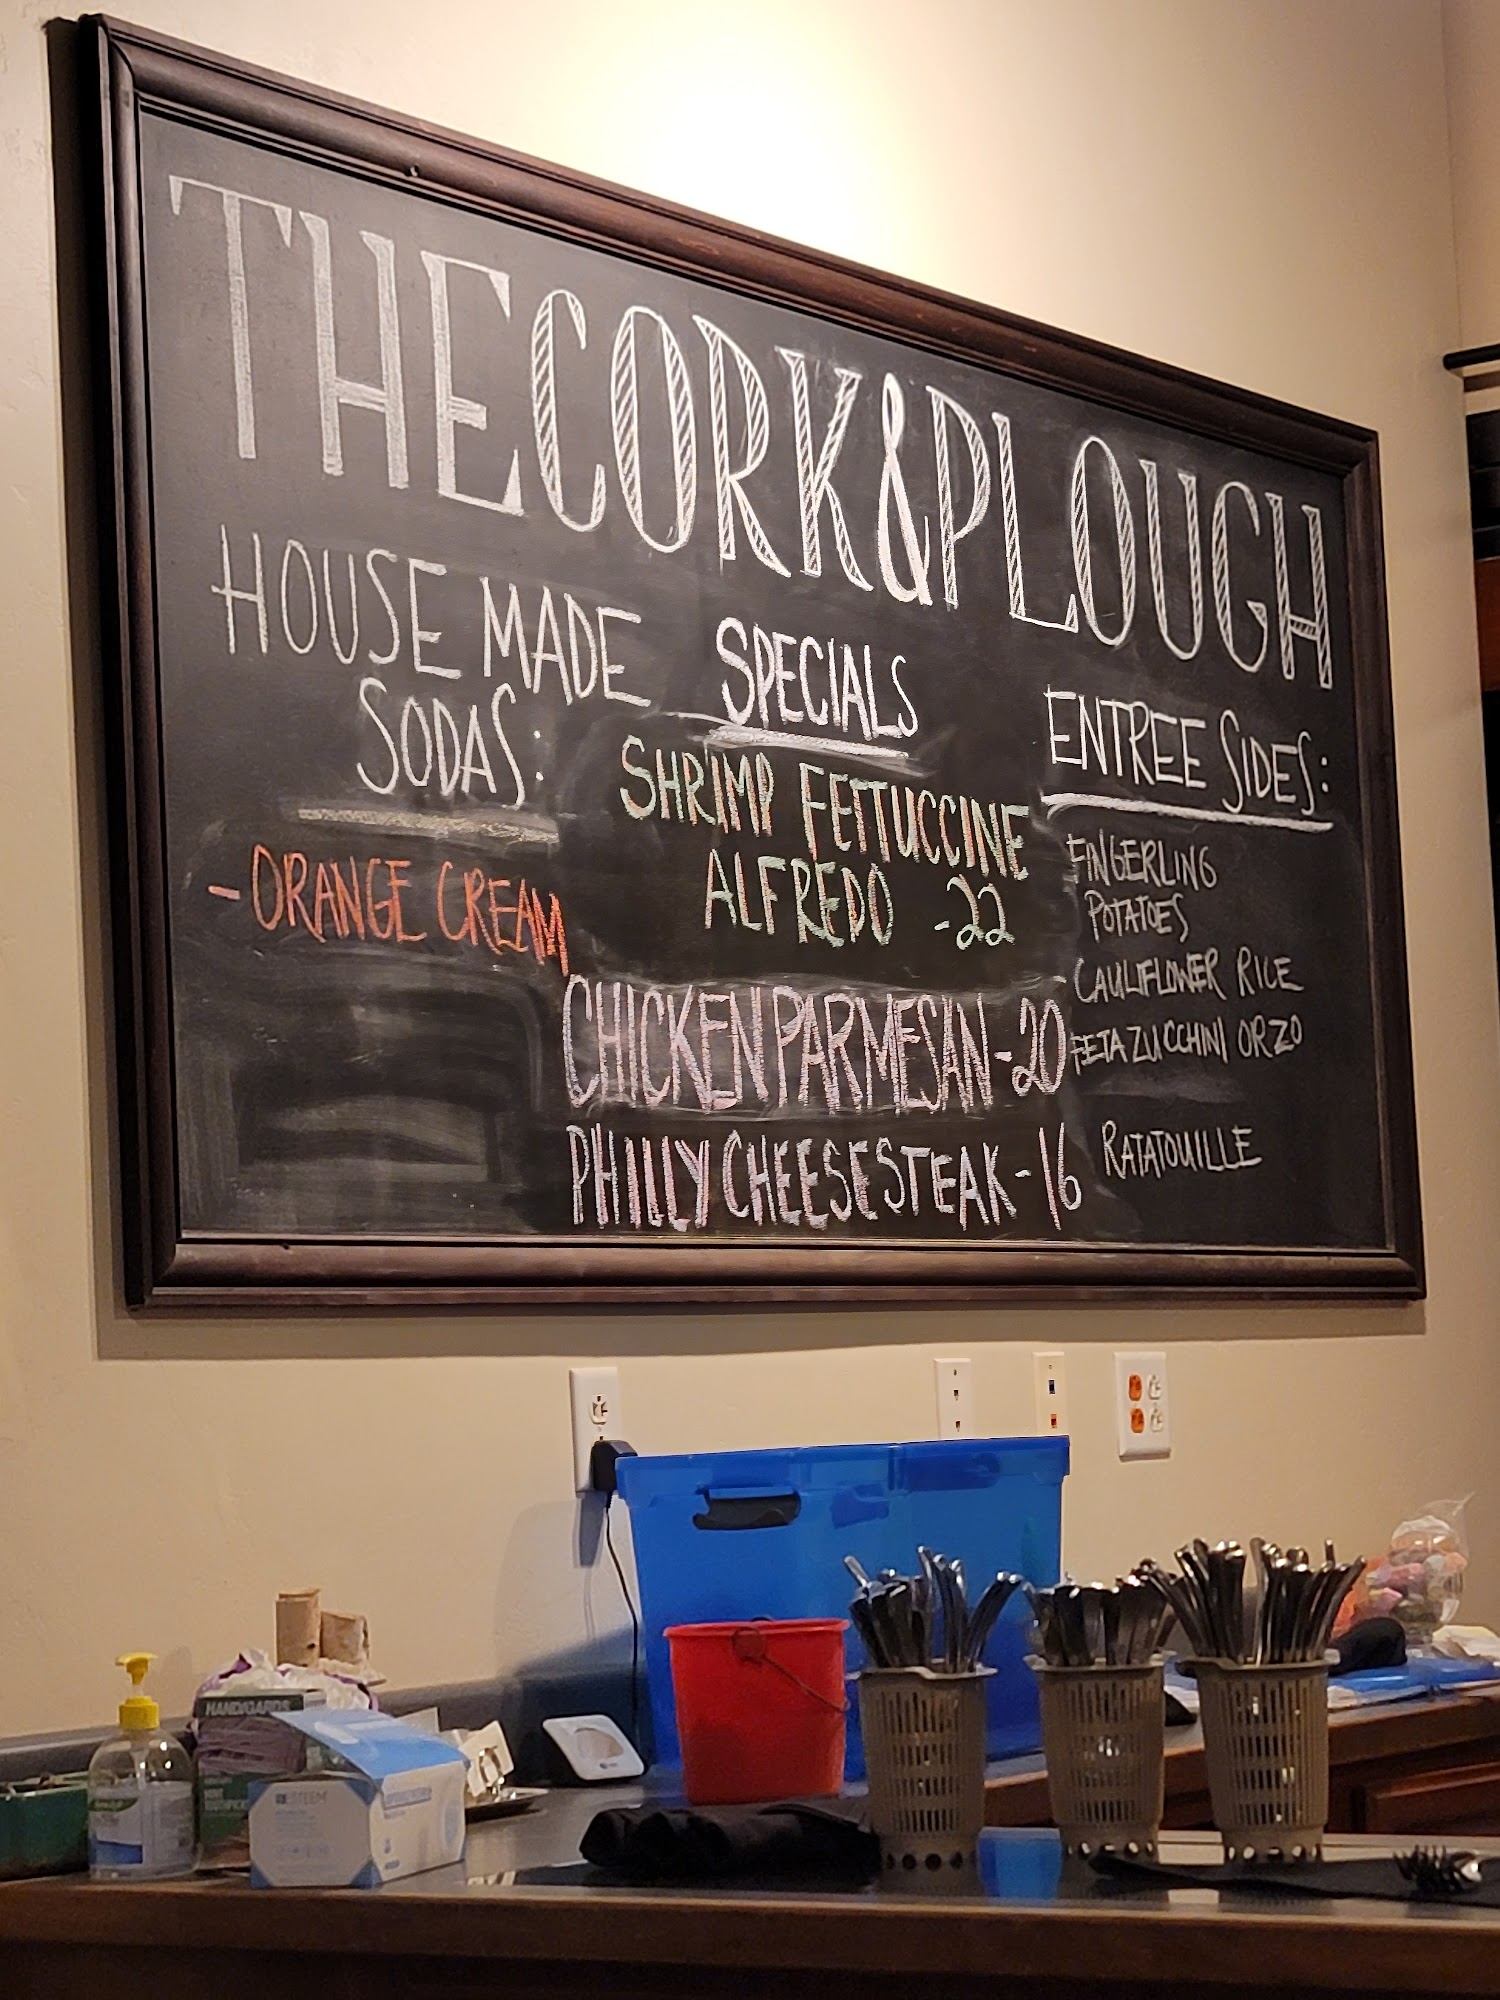 THE CORK & PLOUGH
HOUSE MADE
SODAS:
- ORANGE CREAM
SPECIALS
SHRIMP FETTUCCINE
ALFREDO - 22
CHICKEN PARMESAN - 20
PHILLY CHEESESTEAK - 16
ENTREE SIDES:
FINGERLING
POTATOES
CAULIFLOWER RICE
FETA ZUCCHINI ORZO
RATATOUILLE
HANDGARDS
ESTEEM